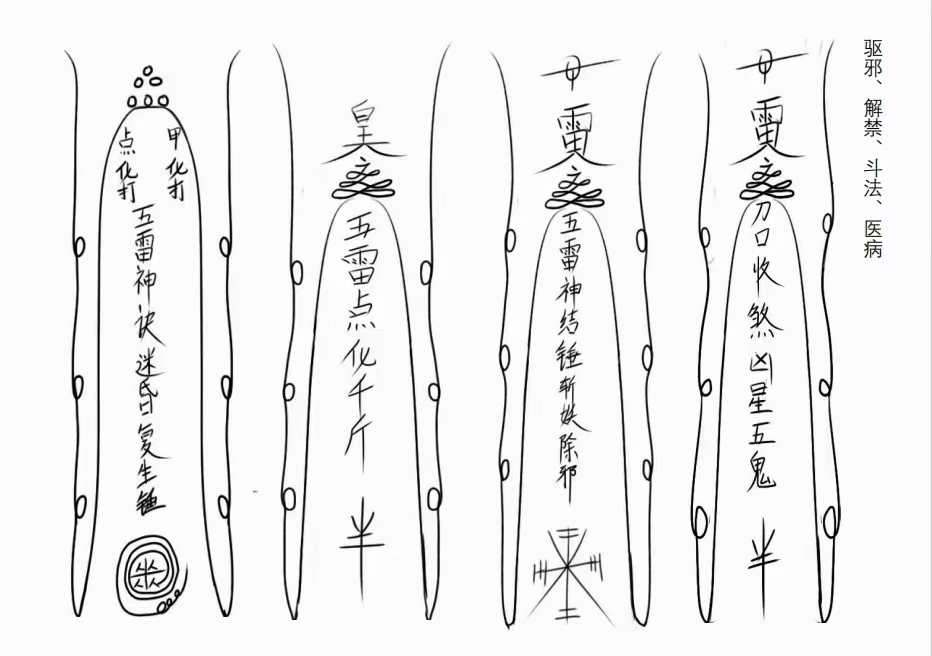 驱邪、解禁、斗法、医病
雷
刀口收煞凶星五鬼
半
雷
五雷神结锤斩妖除邪
皇
五雷点化千斤
半
甲化打
点化打
五雷神诀迷昏复生锤